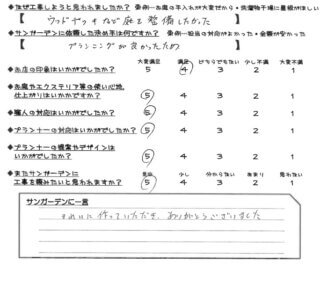 ◆なぜ工事しようと思われましたか？ 事例…お庭の手入れが大変だから・洗濯物干場に屋根がほしい
【ウッドデッキなど庭を整備したかった】
◆サンガーデンに依頼した決め手は何ですか？ 事例…担当の対応がよかった・金額が安かった
【プランニングが良かったため】
大変満足 満足 どちらでもない 少し不満 大変不満
◆お店の印象はいかがでしたか？ 5 4 3 2 1
◆お庭やエクステリア等の使い心地、
仕上がりはいかがですか？ 5 4 3 2 1
◆職人の対応はいかがでしたか？ 5 4 3 2 1
◆プランナーの対応はいかがでしたか？ 5 4 3 2 1
◆プランナーの提案やデザインは
いかがでしたか？ 5 4 3 2 1
◆またサンガーデンに 見込 少し 分からない あまり 思わない
工事を頼みたいと思われますか？ 5 4 3 2 1
サンガーデンに一言
きれいに作っていただき、ありがとうございました